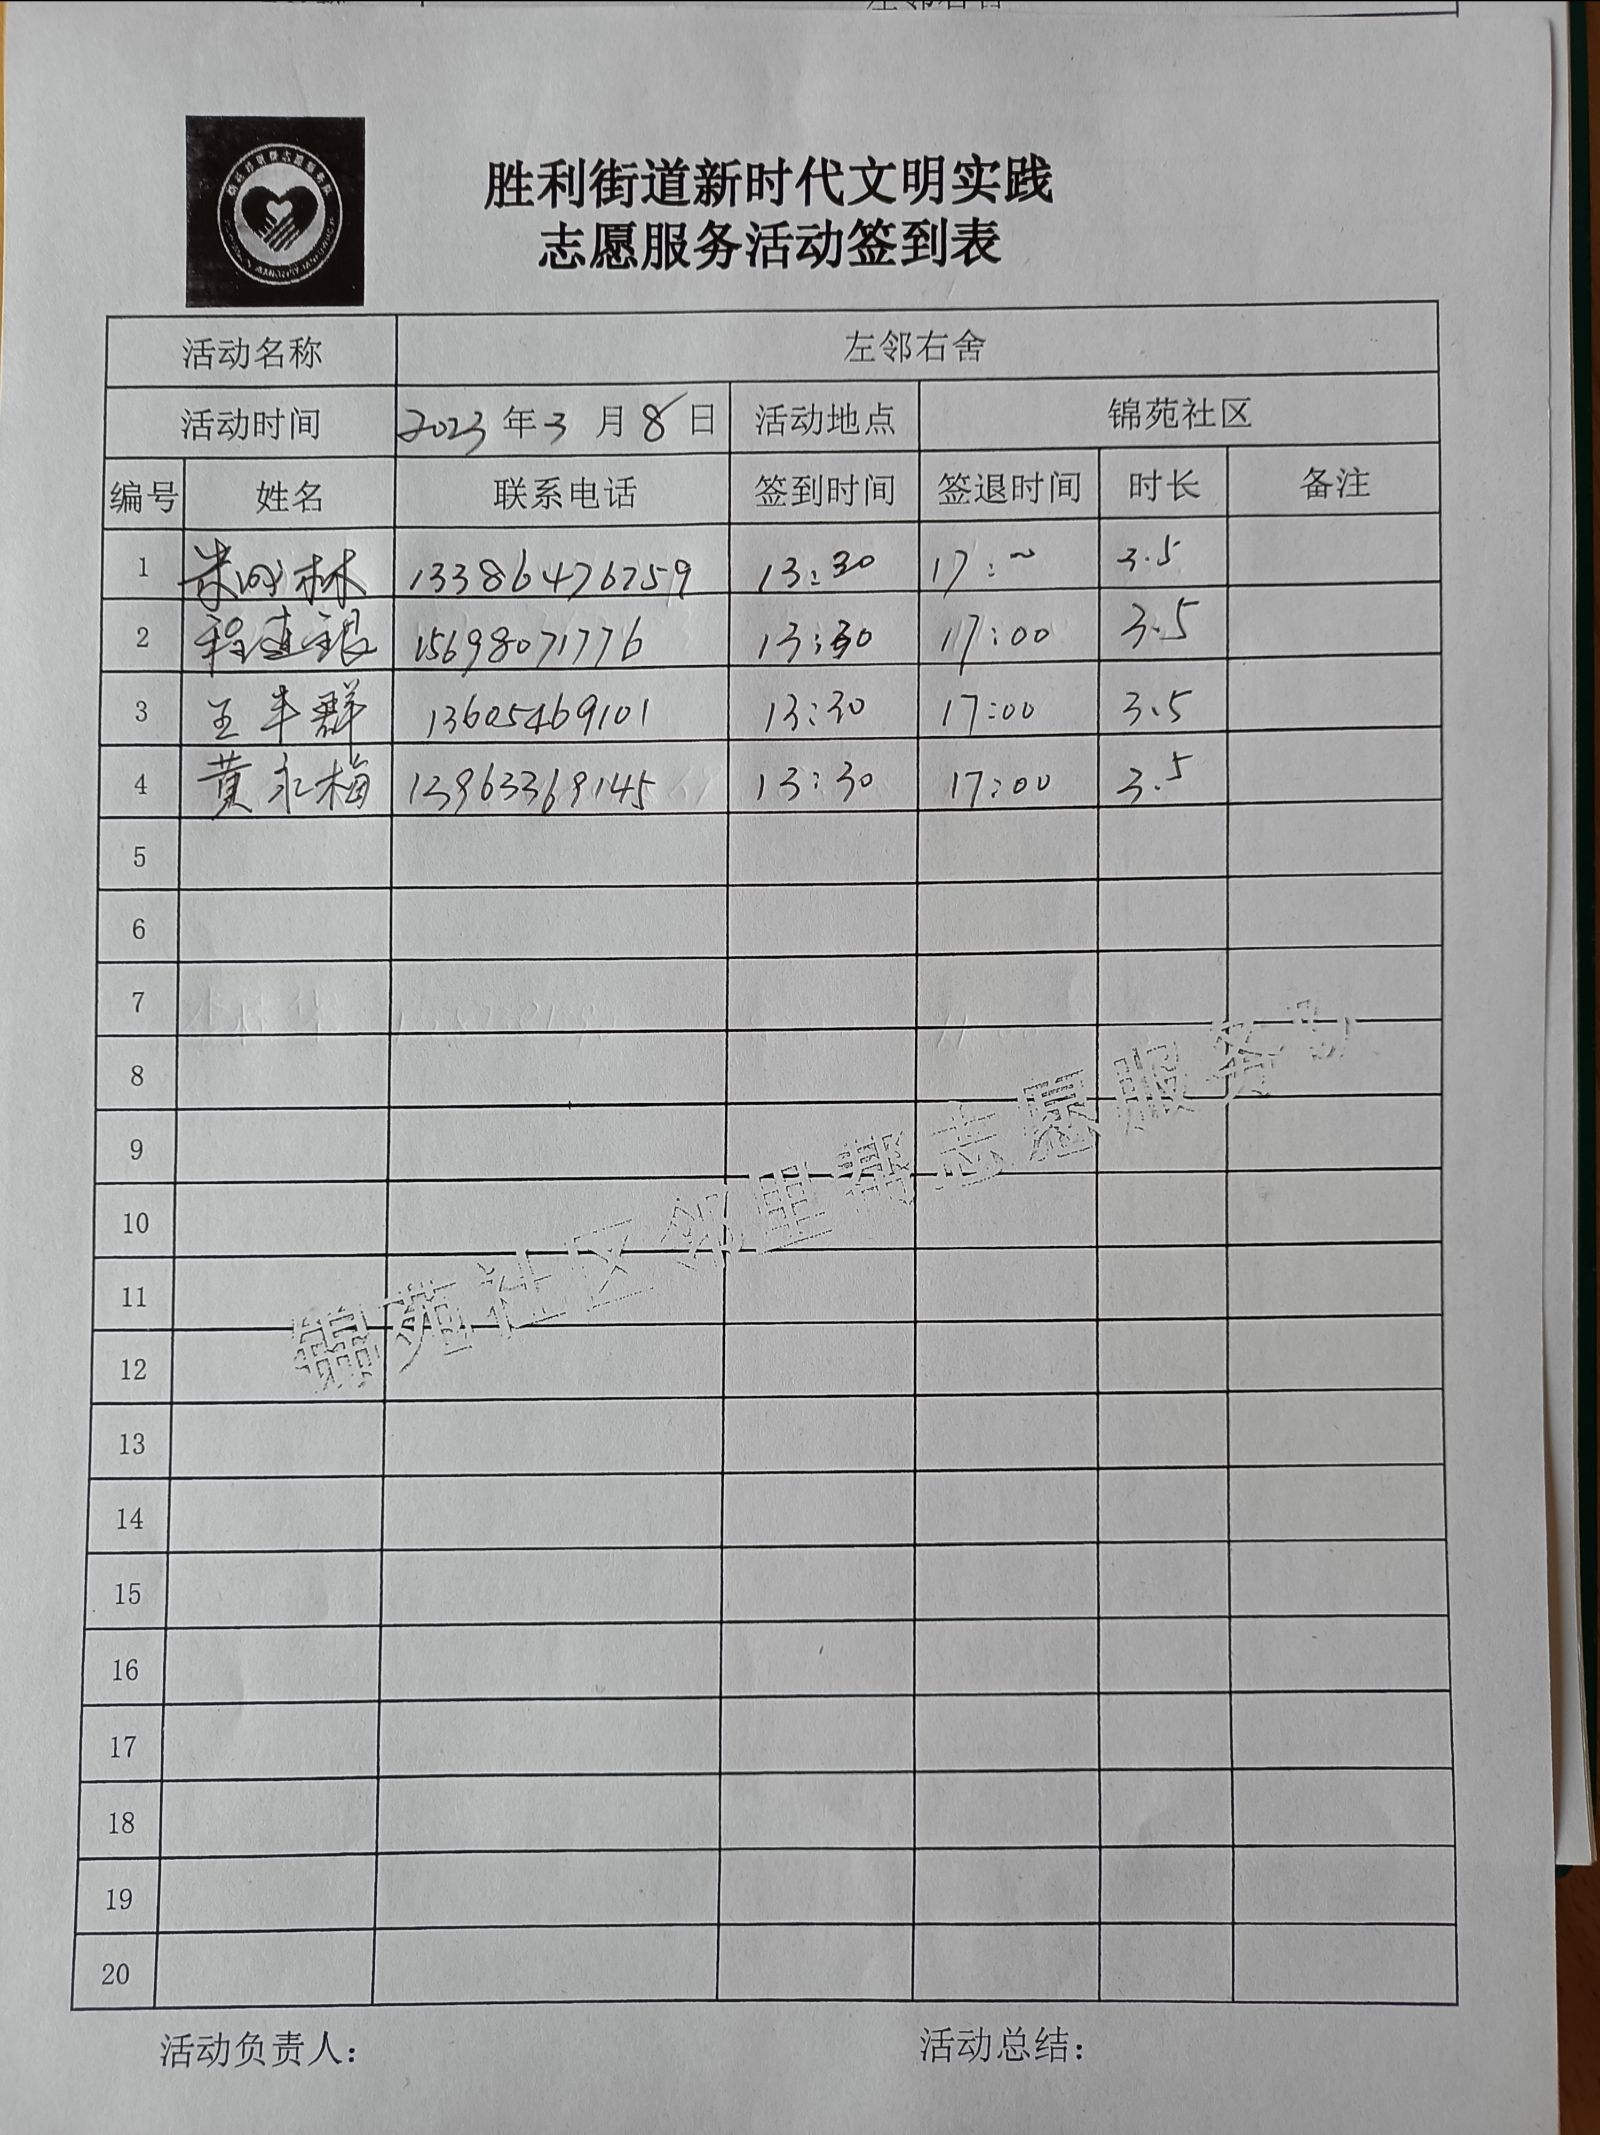 左邻右舍
胜利街道新时代文明实践
志愿服务活动签到表
活动名称 左邻右舍
活动时间 2023年3月8日 活动地点 锦苑社区
编号 姓名 联系电话 签到时间 签退时间 时长 备注
1 林 13386476259 13:30 17:~ 3.5
2 程建银 15698071776 13:30 17:00 3.5
3 王丰群 13605469101 13:30 17:00 3.5
4 黄永梅 13963369145 13:30 17:00 3.5
5
6
7
8
9
10
11
12
13
14
15
16
17
18
19
20
锦苑社区邻里帮志愿服务队
活动负责人： 活动总结：